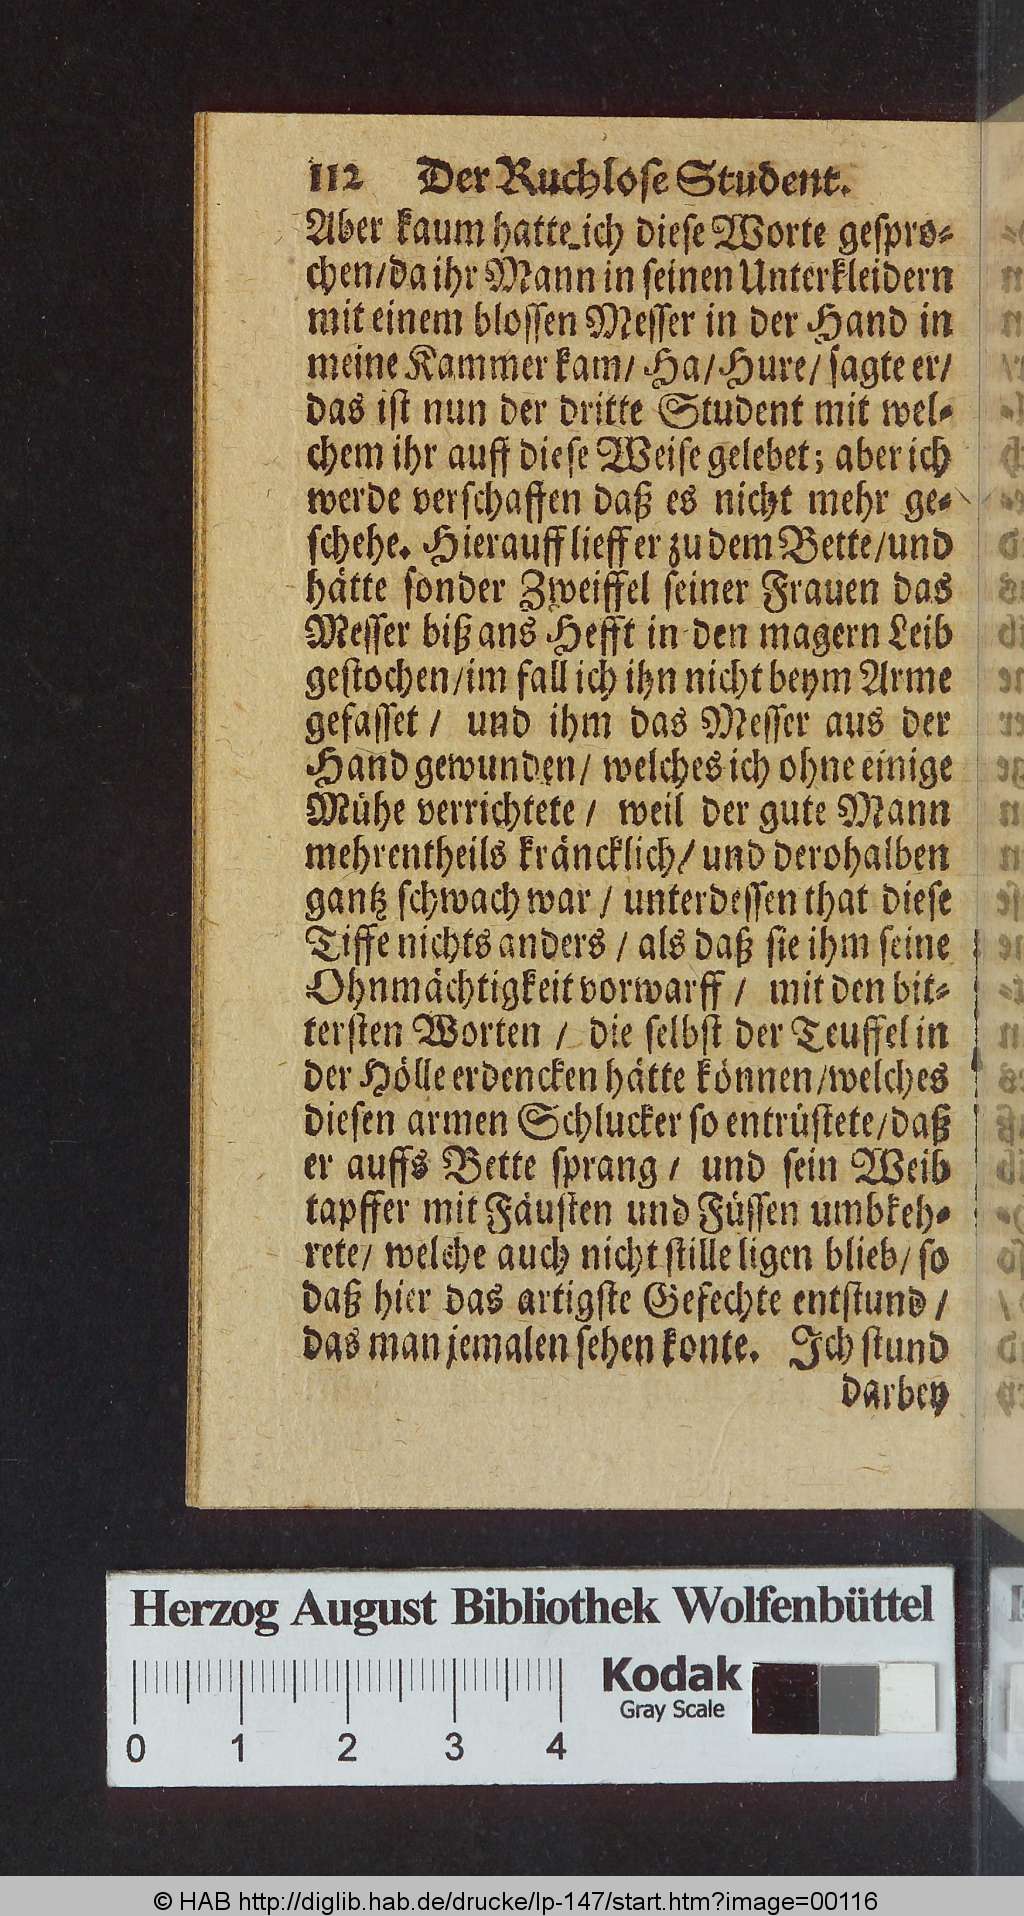 112 Der Ruchlose Student.
Aber kaum hatte ich diese Worte gespro-
chen/da ihr Mann in seinen Unterkleidern
mit einem blossen Messer in der Hand in
meine Kammer kam/ Ha/ Hure/ sagte er/
das ist nun der dritte Student mit wel-
chem ihr auff diese Weise gelebet; aber ich
werde verschaffen daß es nicht mehr ge-
schehe. Hierauff lieff er zu dem Bette/und
hätte sonder Zweiffel seiner Frauen das
Messer biß ans Hefft in den magern Leib
gestochen/im fall ich ihn nicht beym Arme
gefasset / und ihm das Messer aus der
Hand gewunden/ welches ich ohne einige
Mühe verrichtete / weil der gute Mann
mehrentheils kräncklich/ und derohalben
gantz schwach war / unterdessen that diese
Tiffe nichts anders / als daß sie ihm seine
Ohnmächtigkeit vorwarff / mit den bit-
tersten Worten / die selbst der Teuffel in
der Hölle erdencken hätte können/welches
diesen armen Schlucker so entrüstete/daß
er auffs Bette sprang / und sein Weib
tapffer mit Fäusten und Füssen umbkeh-
rete/ welche auch nicht stille ligen blieb/ so
daß hier das artigste Gefechte entstund /
das man jemalen sehen konte. Ich stund
darbey
Herzog August Bibliothek Wolfenbüttel
Kodak
Gray Scale
0 1 2 3 4
© HAB http://diglib.hab.de/drucke/lp-147/start.htm?image=00116